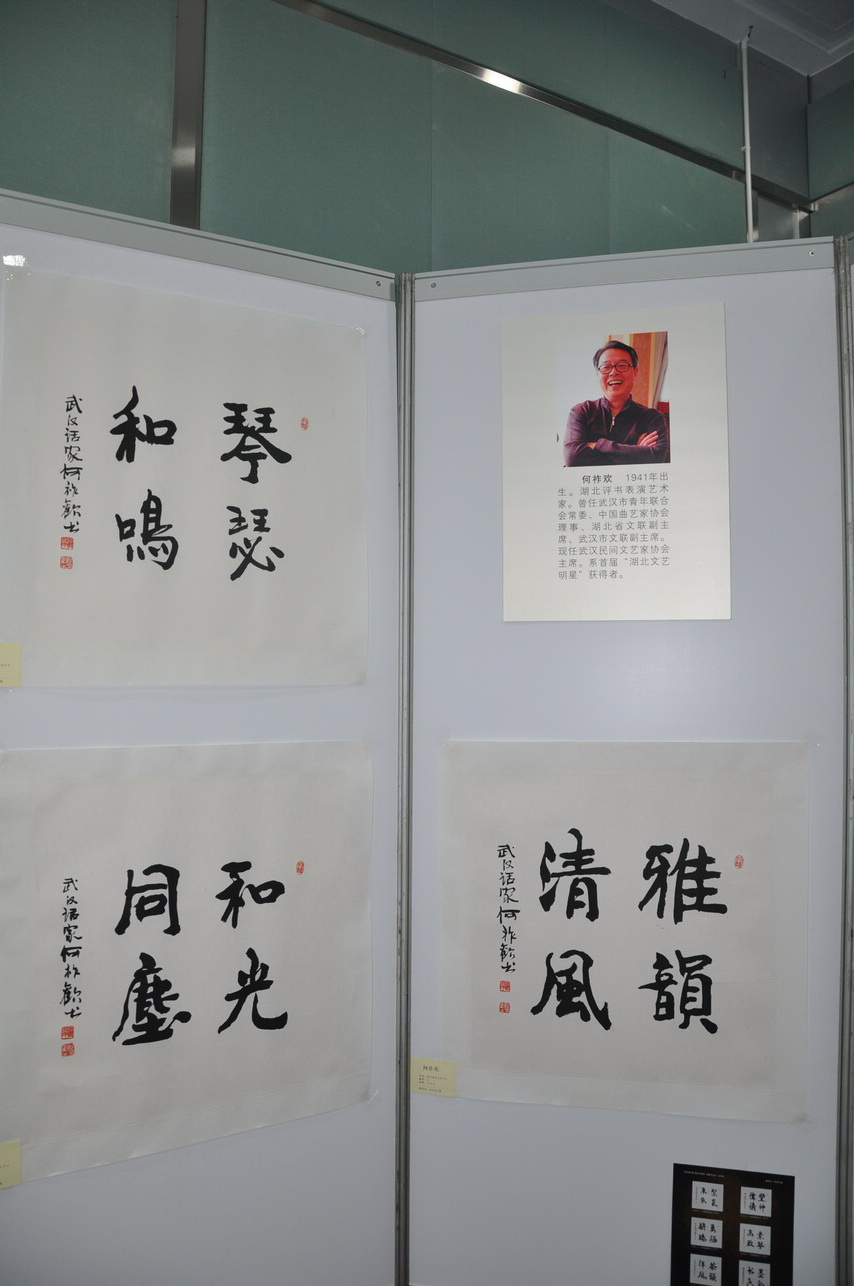 琴瑟
和鳴
武汉话家何祚歡书
何祚欢 1941年出
生。湖北评书表演艺术
家。曾任武汉市青年联合
会常委、中国曲艺家协会
理事、湖北省文联副主
席、武汉市文联副主席。
现任武汉民间文艺家协会
主席。系首届“湖北文艺
明星”获得者。
和光
同塵
武汉话家何祚歡书
雅韻
清風
武汉话家何祚歡书
何祚欢